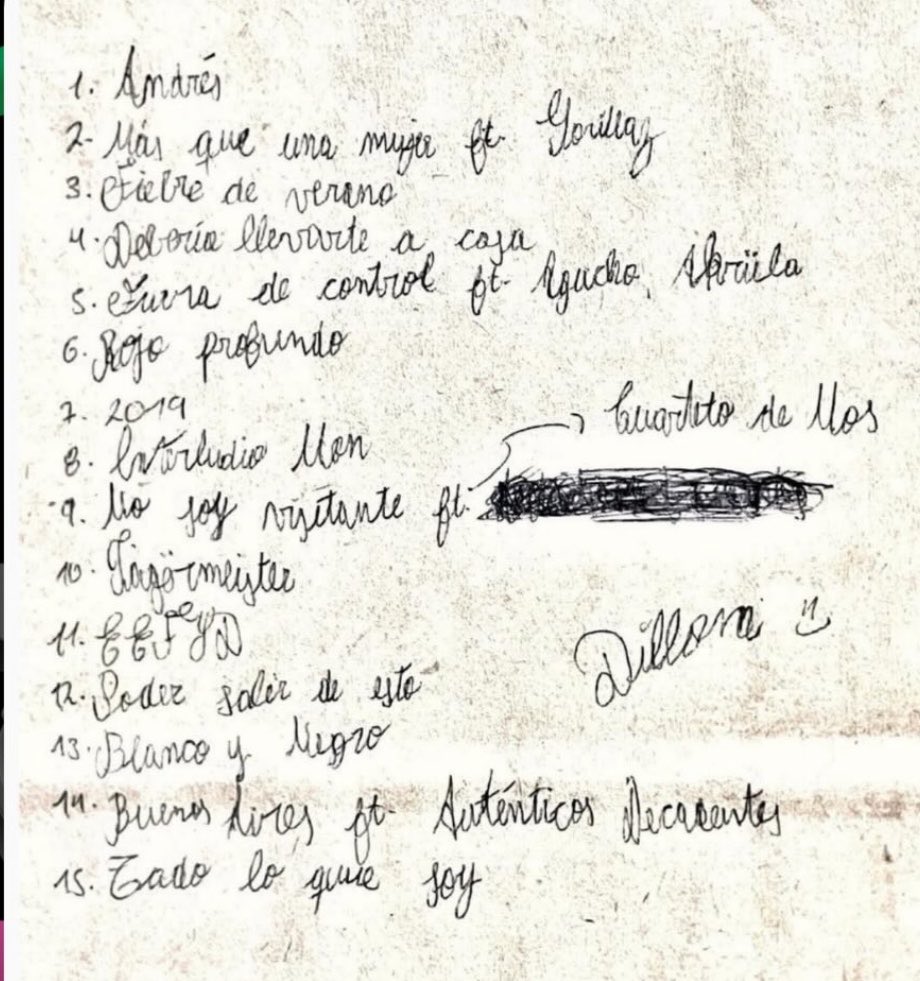 1. Andrés
2- Más que una mujer ft. Gorillaz
3. Fiebre de verano
4. Debería llevarte a casa
5. Fuera de control ft.
6. Rojo profundo
Cuarteto de Nos
7. 2019
8. Interludio Non
9. No soy visitante ft.
10. Jagërmeister
11.
Dillom
12. Poder salir de esto
13. Blanco y Negro
14. Buenos Aires ft. Auténticos Decadentes
15. Todo lo que soy